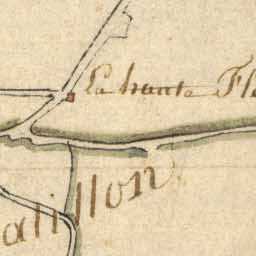 La haute Fl
atillon